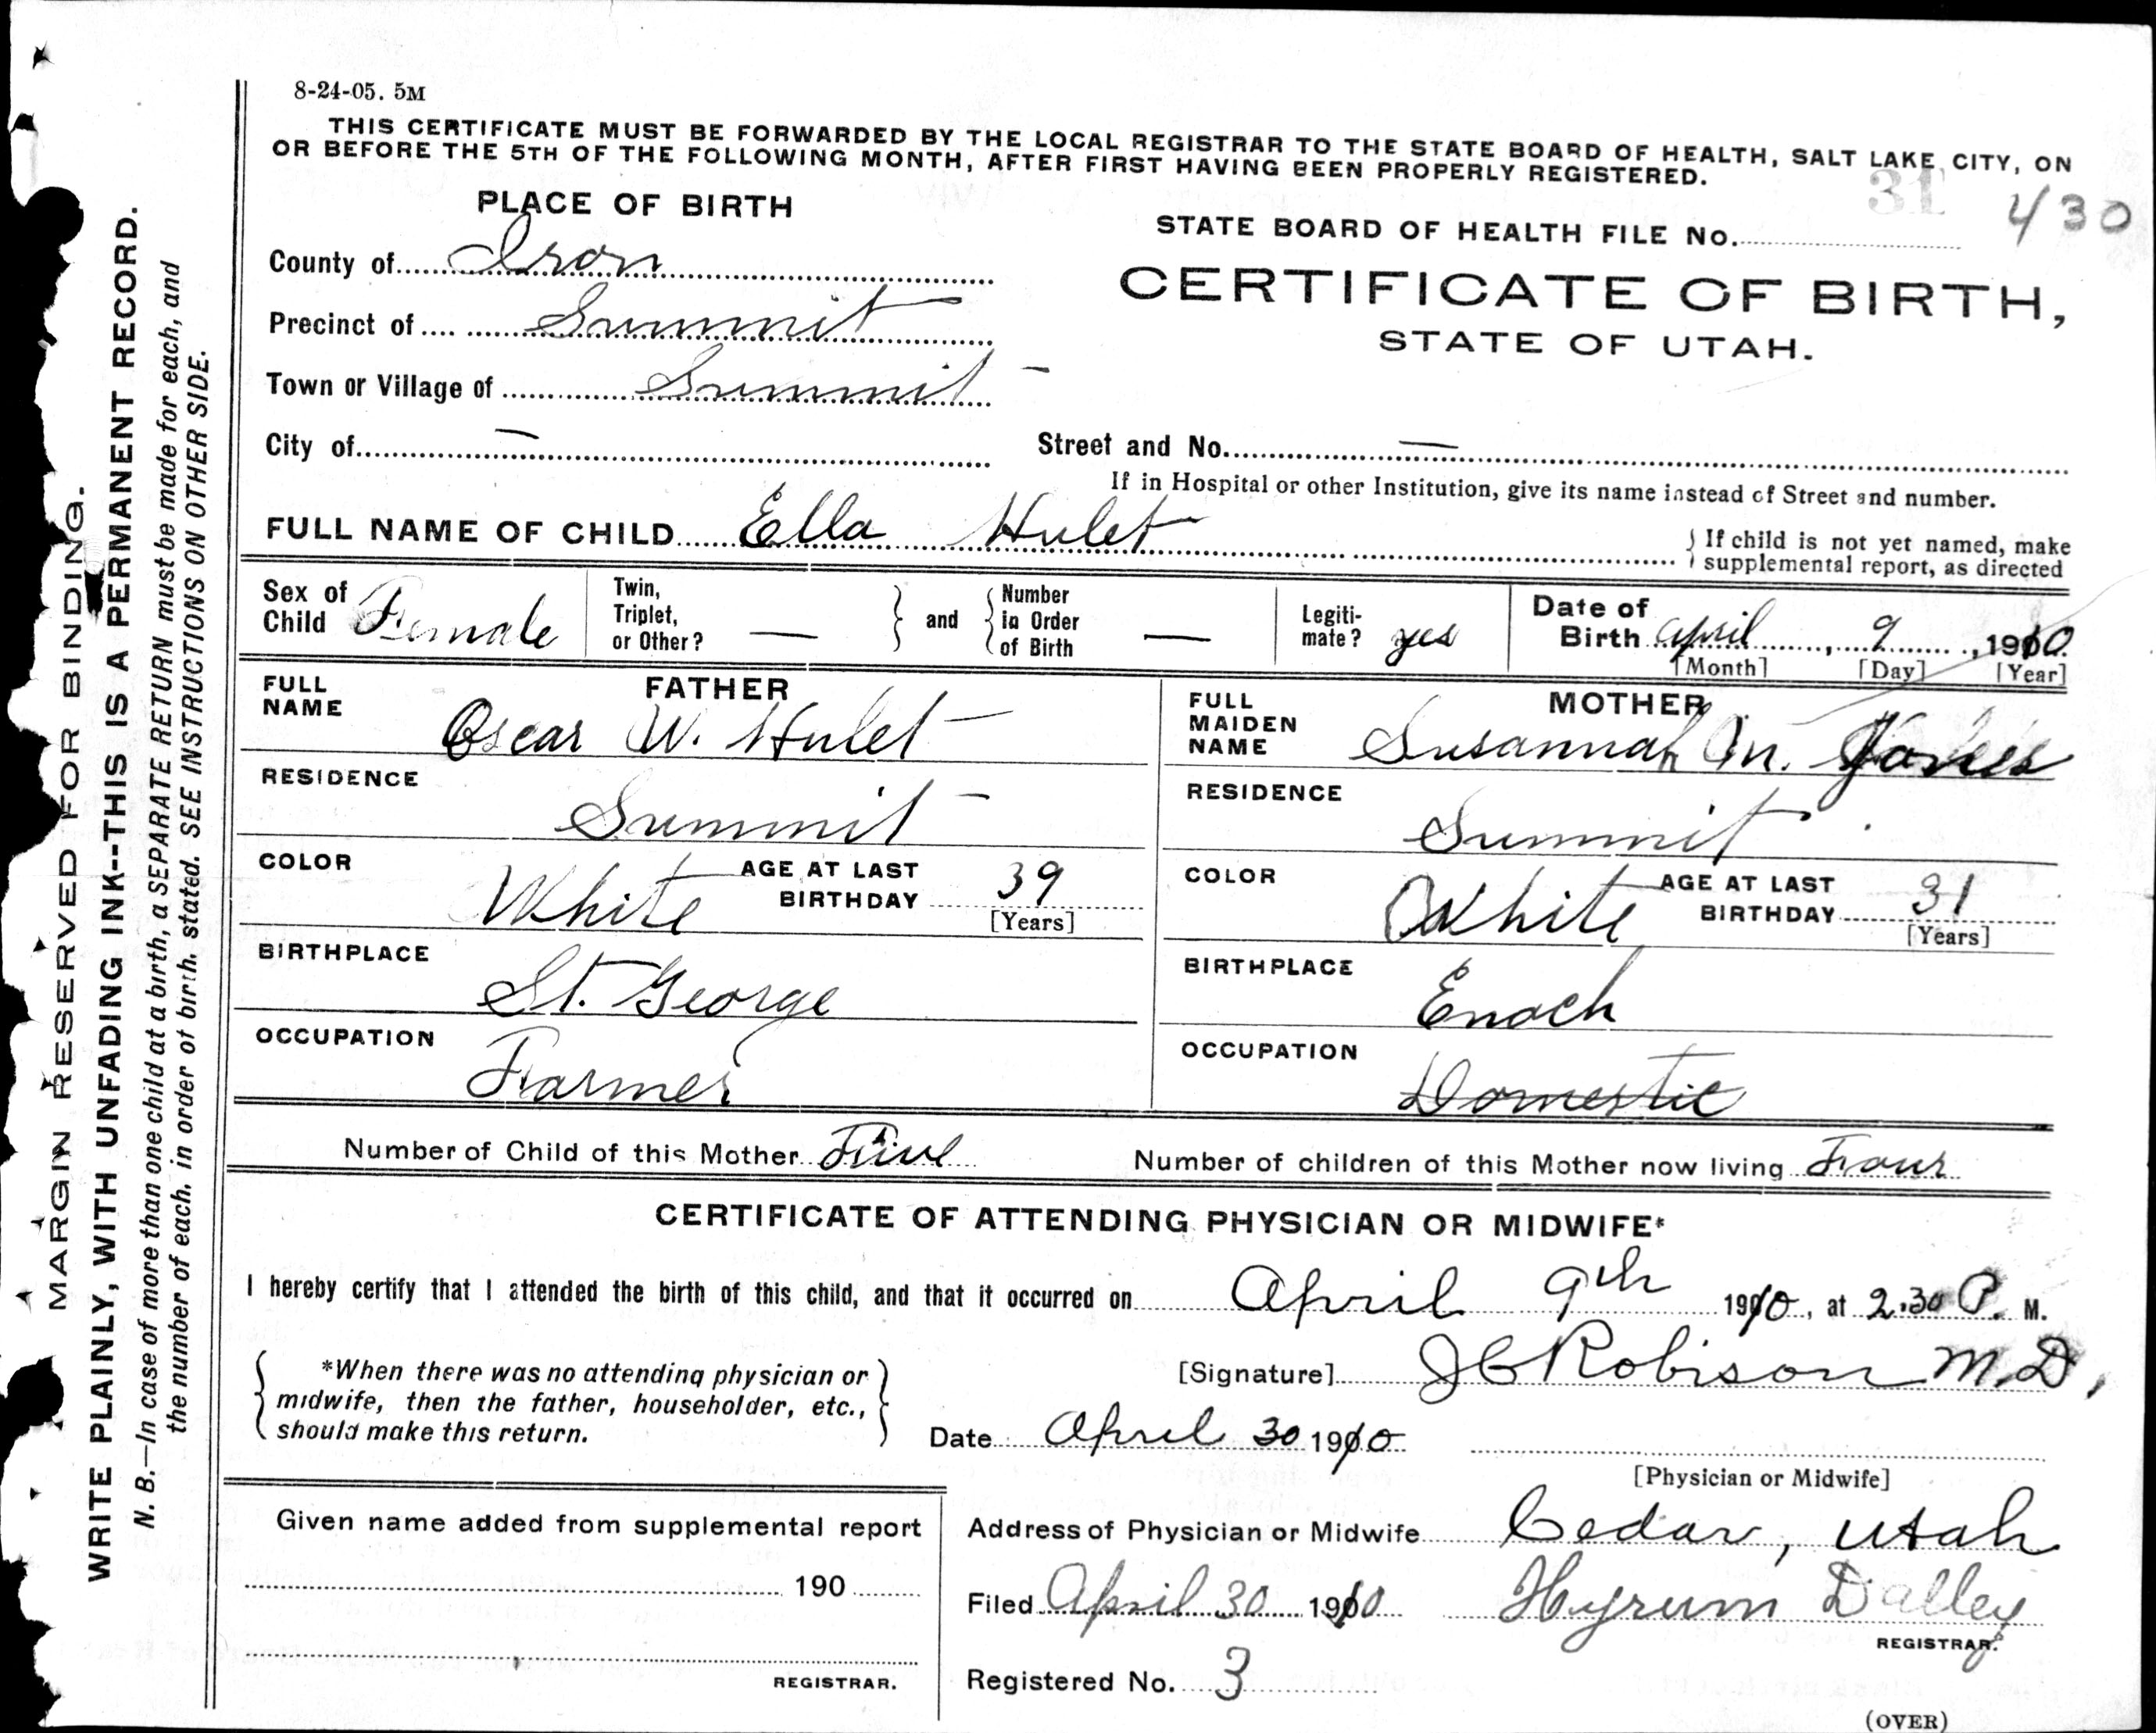 8-24-05. 5M
THIS CERTIFICATE MUST BE FORWARDED BY THE LOCAL REGISTRAR TO THE STATE BOARD OF HEALTH, SALT LAKE CITY, ON
OR BEFORE THE 5TH OF THE FOLLOWING MONTH, AFTER FIRST HAVING BEEN PROPERLY REGISTERED.
31 430
PLACE OF BIRTH
STATE BOARD OF HEALTH FILE No.
County of Iron
CERTIFICATE OF BIRTH,
Precinct of Summit
STATE OF UTAH.
Town or Village of Summit
City of — Street and No. —
If in Hospital or other Institution, give its name instead of Street and number.
FULL NAME OF CHILD Ella Hulet
If child is not yet named, make
supplemental report, as directed
Sex of
Child Female
Twin,
Triplet,
or Other? —
and
Number
in Order
of Birth —
Legiti-
mate? yes
Date of
Birth April 9, 1910
[Month] [Day] [Year]
FATHER
FULL
NAME
Oscar W. Hulet
RESIDENCE
Summit
COLOR
White
AGE AT LAST
BIRTHDAY 39
[Years]
BIRTHPLACE
St. George
OCCUPATION
Farmer
MOTHER
FULL
MAIDEN
NAME
Susannah M. Jones
RESIDENCE
Summit
COLOR
White
AGE AT LAST
BIRTHDAY 31
[Years]
BIRTHPLACE
Enoch
OCCUPATION
Domestic
Number of Child of this Mother Five Number of children of this Mother now living Four
CERTIFICATE OF ATTENDING PHYSICIAN OR MIDWIFE*
I hereby certify that I attended the birth of this child, and that it occurred on April 9th 1910, at 2.30 P. M.
*When there was no attending physician or
midwife, then the father, householder, etc.,
should make this return.
[Signature] J C Robison M.D,
Date April 30 1910
[Physician or Midwife]
Given name added from supplemental report
190
REGISTRAR.
Address of Physician or Midwife Cedar, Utah
Filed April 30 1910 Hyrum Dalley
REGISTRAR.
Registered No. 3
(OVER)
MARGIN RESERVED FOR BINDING.
WRITE PLAINLY, WITH UNFADING INK--THIS IS A PERMANENT RECORD.
N. B.—In case of more than one child at a birth, a SEPARATE RETURN must be made for each, and
the number of each, in order of birth, stated. SEE INSTRUCTIONS ON OTHER SIDE.